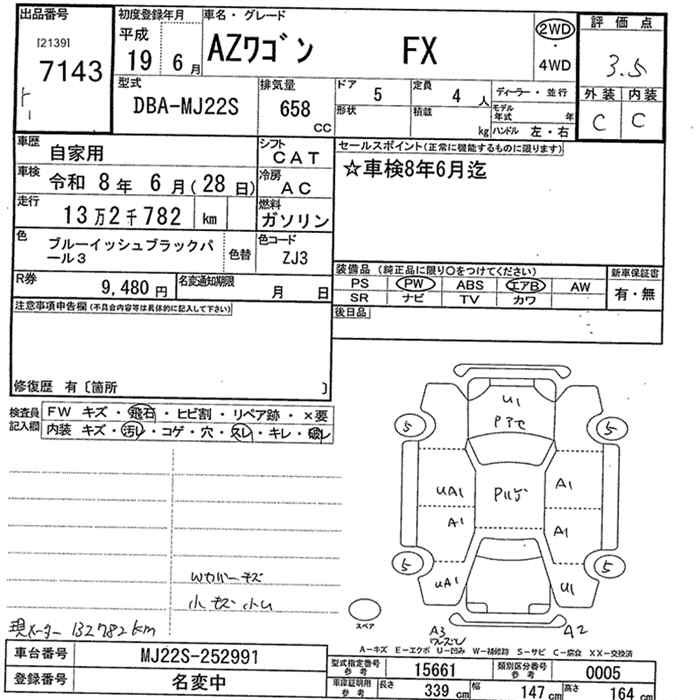 出品番号
[2139]
7143
初度登録年月
平成
19 年 6 月
車名・グレード
AZワゴン FX
2WD
・
4WD
評価点
3.5
外装 内装
C C
型式
DBA-MJ22S
排気量
658
CC
ドア 5
定員 4 人
形状
積載 kg
ディーラー・並行
モデル年式 年
ハンドル 左・右
車歴 自家用
シフト CAT
車検 令和 8年 6月(28日)
冷房 AC
走行 13万2千782 km
燃料 ガソリン
色 ブルーイッシュブラックパール3
色替
色コード ZJ3
R券 9,480円
名変通知期限 月 日
セールスポイント(正常に機能するものに限ります)
☆車検8年6月迄
装備品(純正品に限り○をつけてください)
新車保証書
PS PW ABS エアB AW
SR ナビ TV カワ
有・無
後日品
注意事項申告欄(不具合内容等は具体的に記入して下さい)
修復歴 有〔箇所 〕
検査員記入欄
FW キズ・飛石・ヒビ割・リペア跡・×要
内装 キズ・汚レ・コゲ・穴・スレ・キレ・破レ
U1
5 5
UA1 A1
A1 A1
5 5
UA1 U1
Wカバーキズ
小キズ小凹
現メーター 132782km
スペア
A3
A2
A-キズ E-エクボ U-凹み W-補修跡 S-サビ C-腐食 XX-交換済
車台番号 MJ22S-252991
登録番号 名変中
型式指定番号 参考 15661
類別区分番号 参考 0005
車庫証明用 参考 長さ 339 cm 幅 147 cm 高さ 164 cm